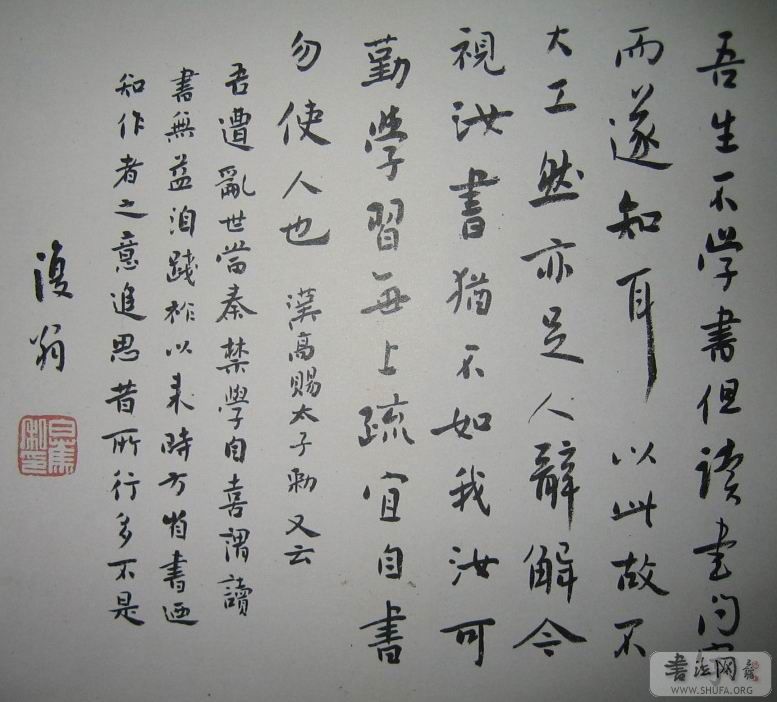 吾生不學書但讀書问字
而遂知耳以此故不
大工然亦足人辭解今
視汝書猶不如我汝可
勤學習每上疏宜自書
勿使人也 漢高賜太子勅又云
吾遭亂世當秦禁學自喜謂讀
書無益洎踐祚以来時方省書迺
知作者之意追思昔所行多不是
復翁
白蕉私印
書法网
WWW.SHUFA.ORG